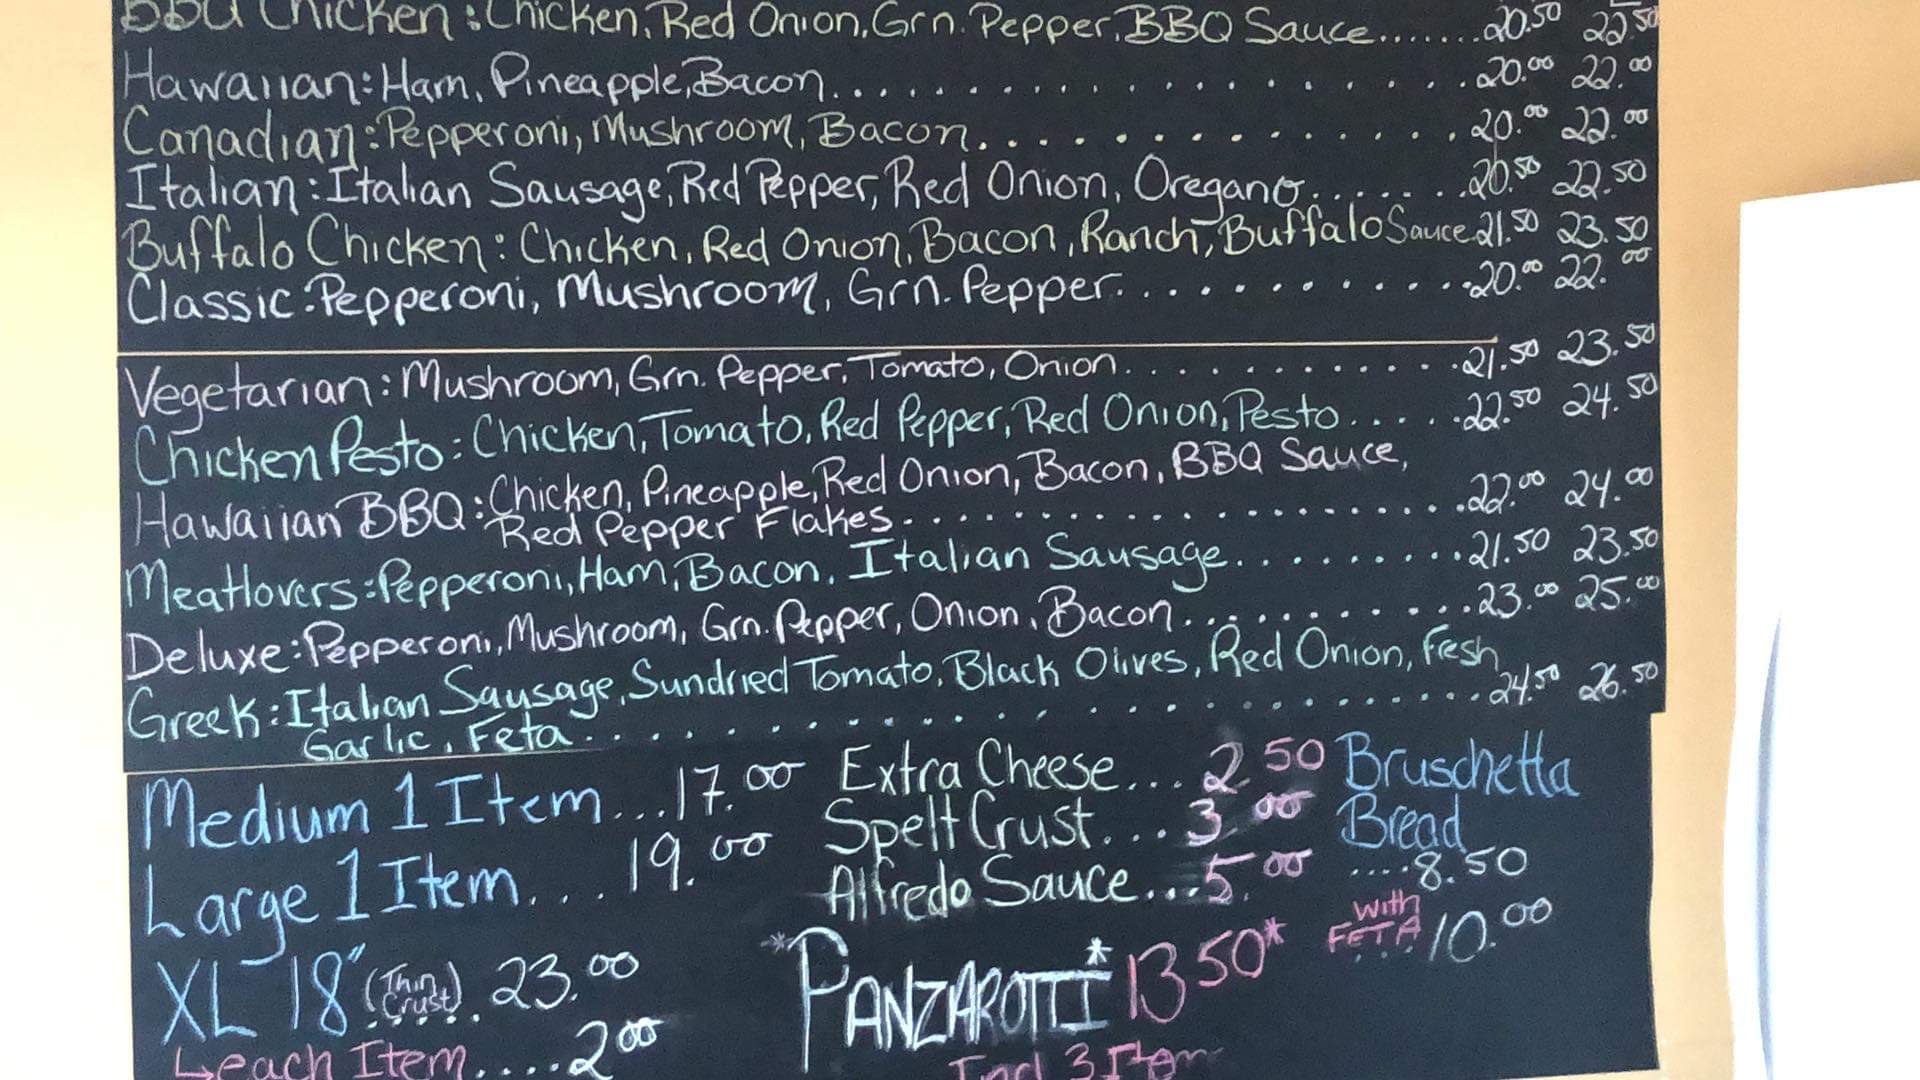 BBQ Chicken: Chicken, Red Onion, Grn. Pepper, BBQ Sauce.......20.50 22.50
Hawaiian: Ham, Pineapple, Bacon....................20.00 22.00
Canadian: Pepperoni, Mushroom, Bacon..............20.00 22.00
Italian: Italian Sausage, Red Pepper, Red Onion, Oregano.......20.50 22.50
Buffalo Chicken: Chicken, Red Onion, Bacon, Ranch, Buffalo Sauce 21.50 23.50
Classic: Pepperoni, Mushroom, Grn. Pepper.............20.00 22.00
Vegetarian: Mushroom, Grn. Pepper, Tomato, Onion............21.50 23.50
Chicken Pesto: Chicken, Tomato, Red Pepper, Red Onion, Pesto......22.50 24.50
Hawaiian BBQ: Chicken, Pineapple, Red Onion, Bacon, BBQ Sauce,
Red Pepper Flakes......................22.00 24.00
Meatlovers: Pepperoni, Ham, Bacon, Italian Sausage.........21.50 23.50
Deluxe: Pepperoni, Mushroom, Grn. Pepper, Onion, Bacon...........23.00 25.00
Greek: Italian Sausage, Sundried Tomato, Black Olives, Red Onion, Fresh
Garlic, Feta.........................24.50 26.50
Medium 1 Item...17.00
Large 1 Item....19.00
XL 18" (Thin Crust).....23.00
↳each Item....2.00
Extra Cheese...2.50
Spelt Crust...3.00
Alfredo Sauce...5.00
*PANZAROTTI* 13.50*
Incl 3 Item
Bruschetta
Bread
....8.50
with
FETA...10.00